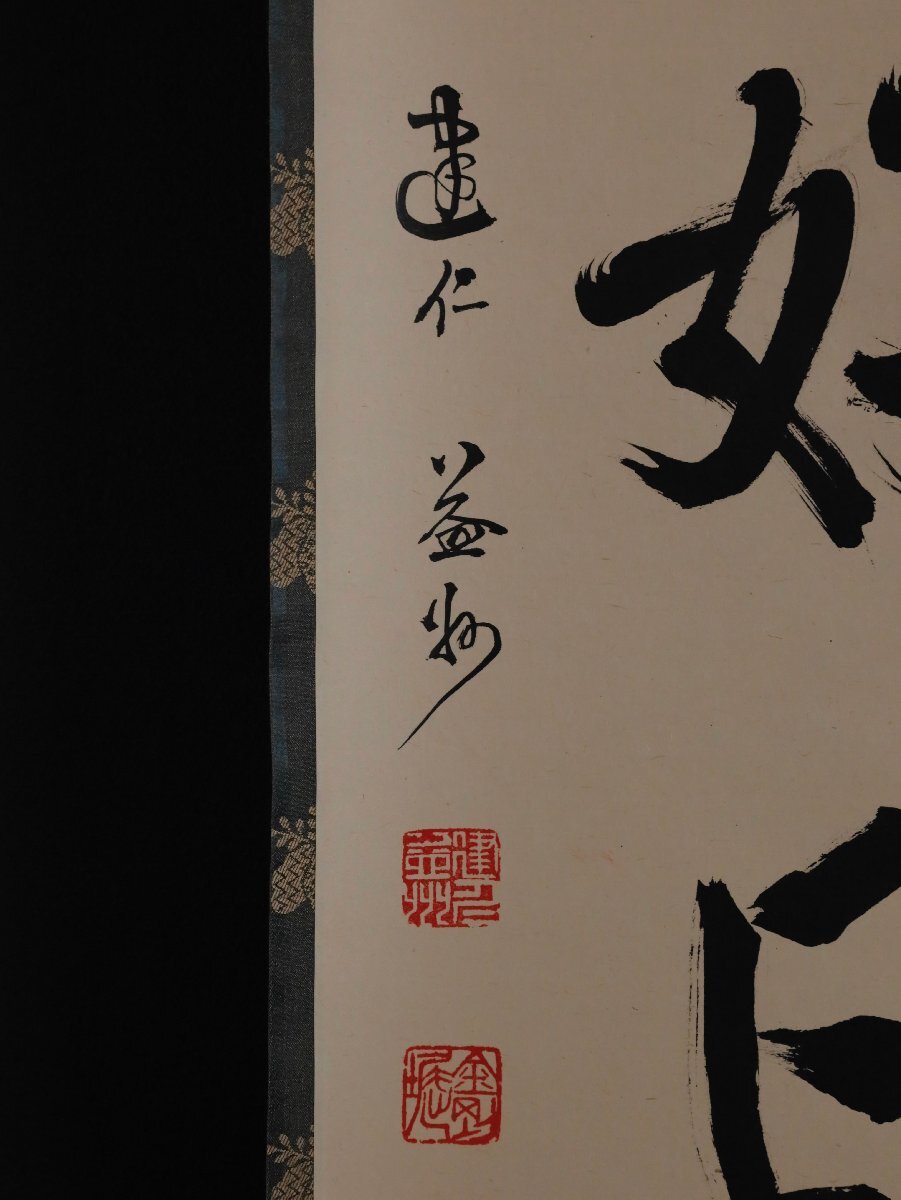 好日
建仁 益州
建仁益州